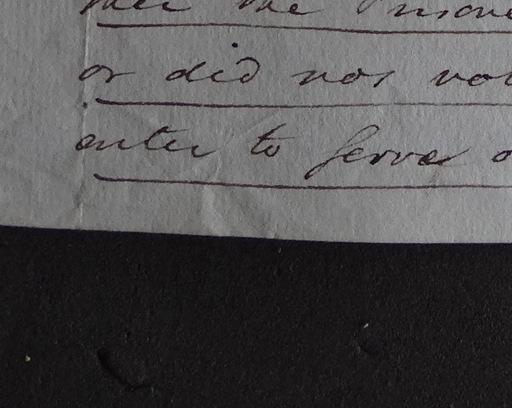 ther the Prisone
or did not vol
enter to serve o